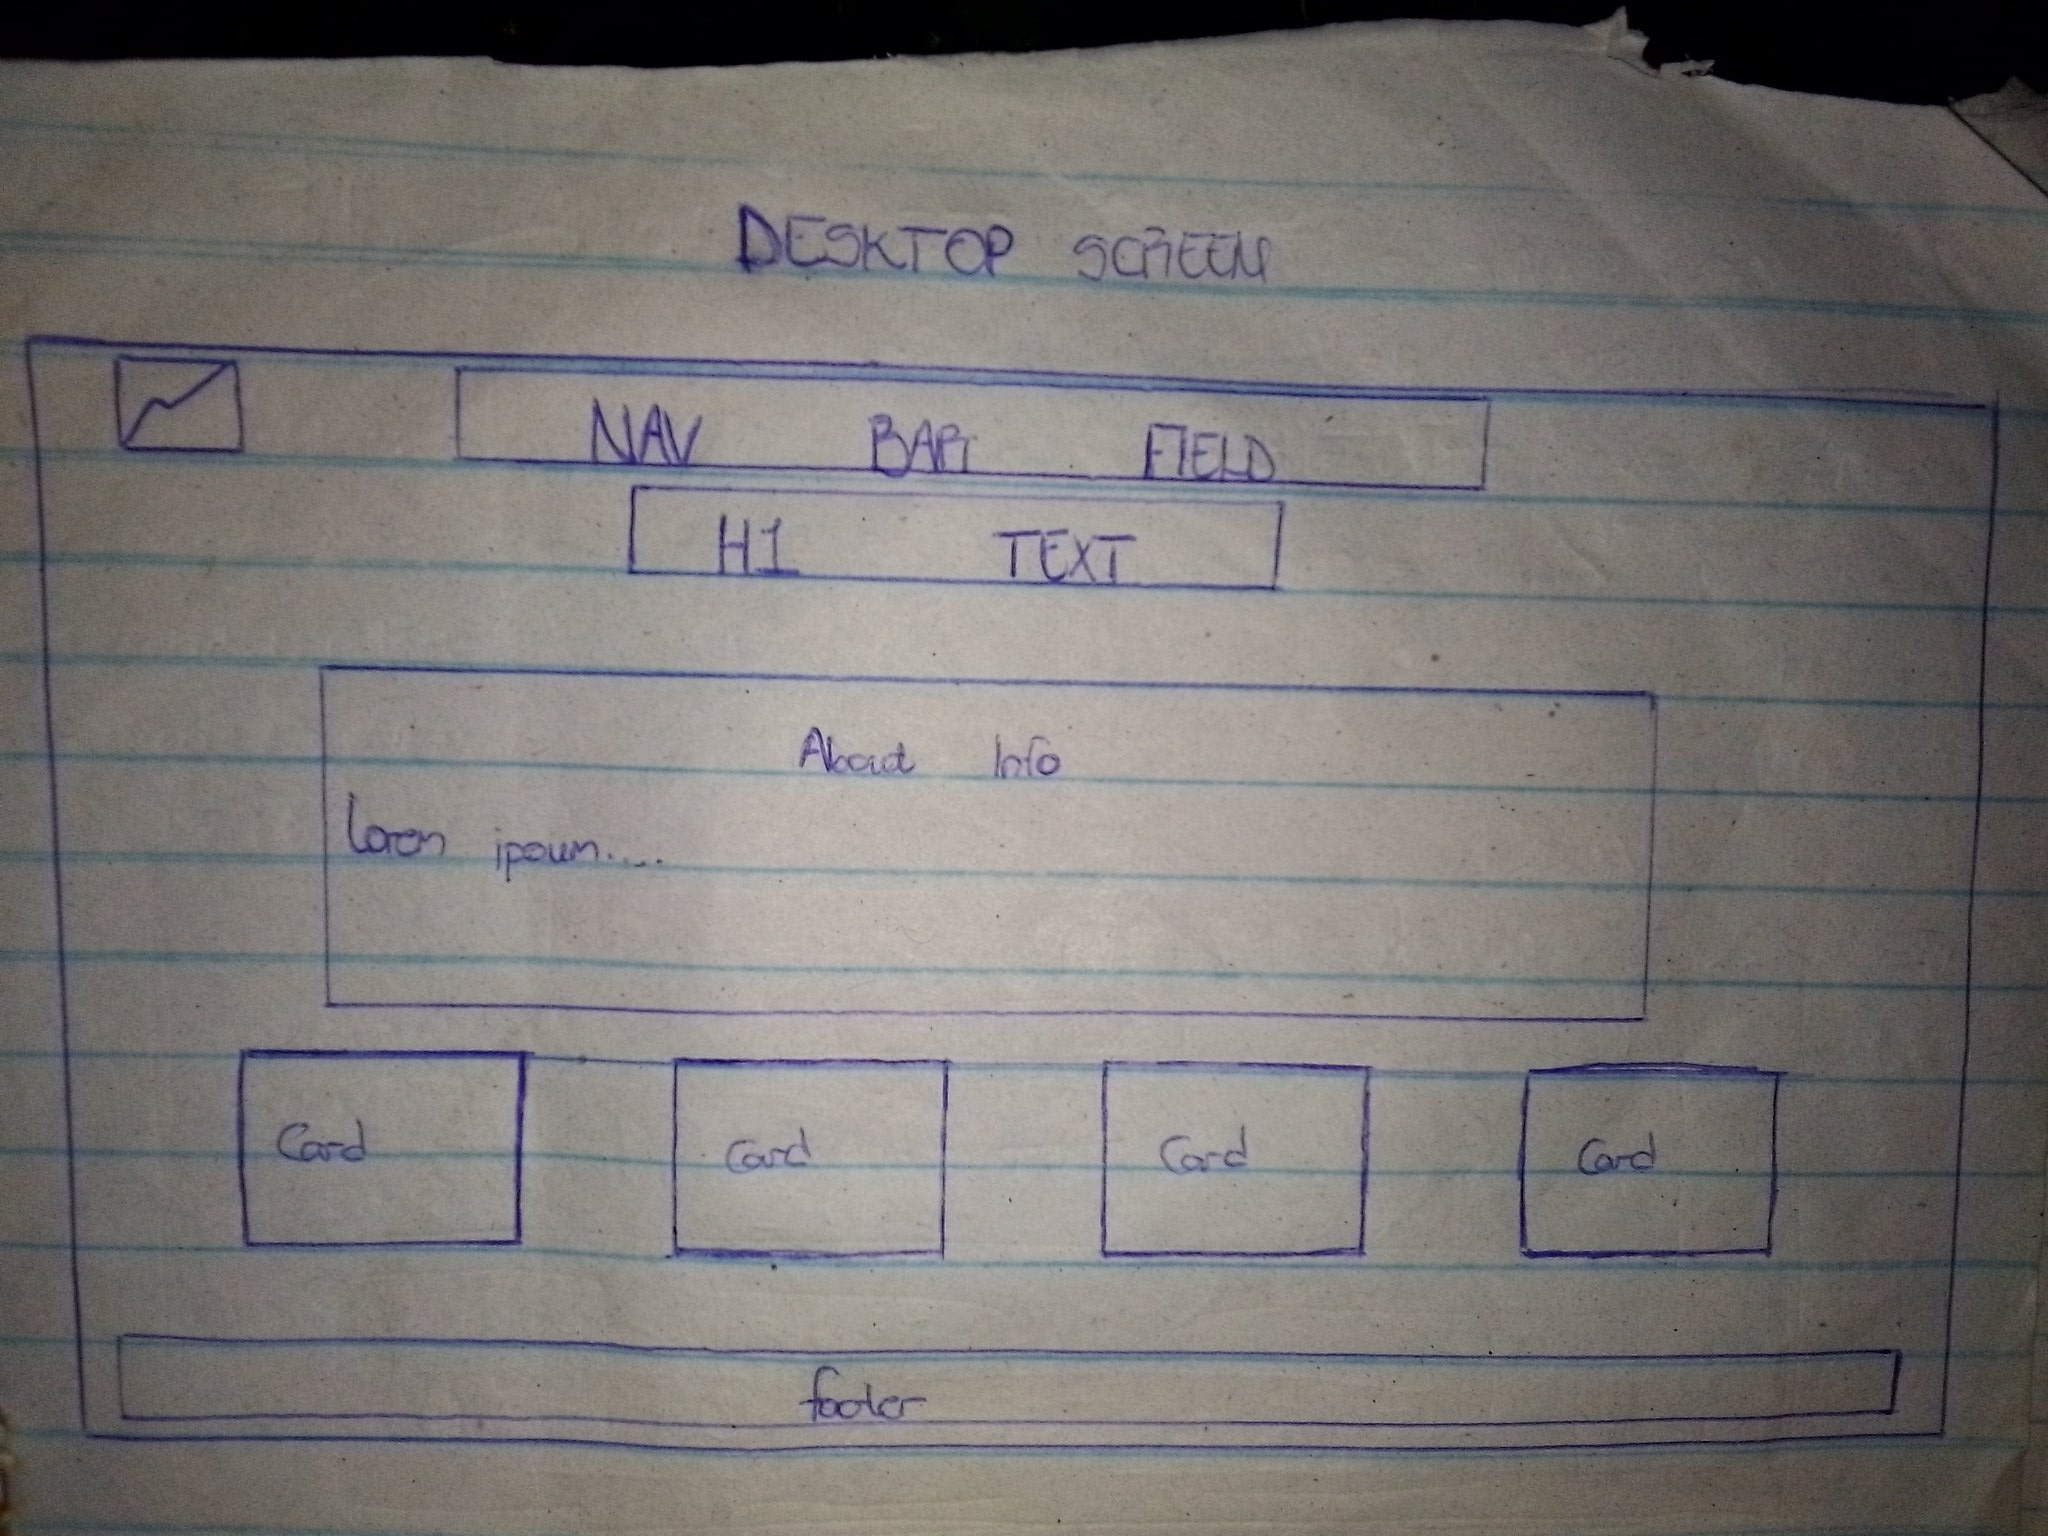 DESKTOP SCREEN
NAV BAR FIELD
H1 TEXT
About Info
Lorem ipsum....
Card Card Card Card
footer